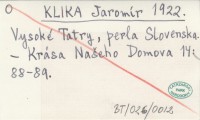 O KLIKA Jaromír 1922.
Vysoké Tatry, perla Slovenska.
– Krása Našeho Domova 14:
88-89.
BT/026/0018